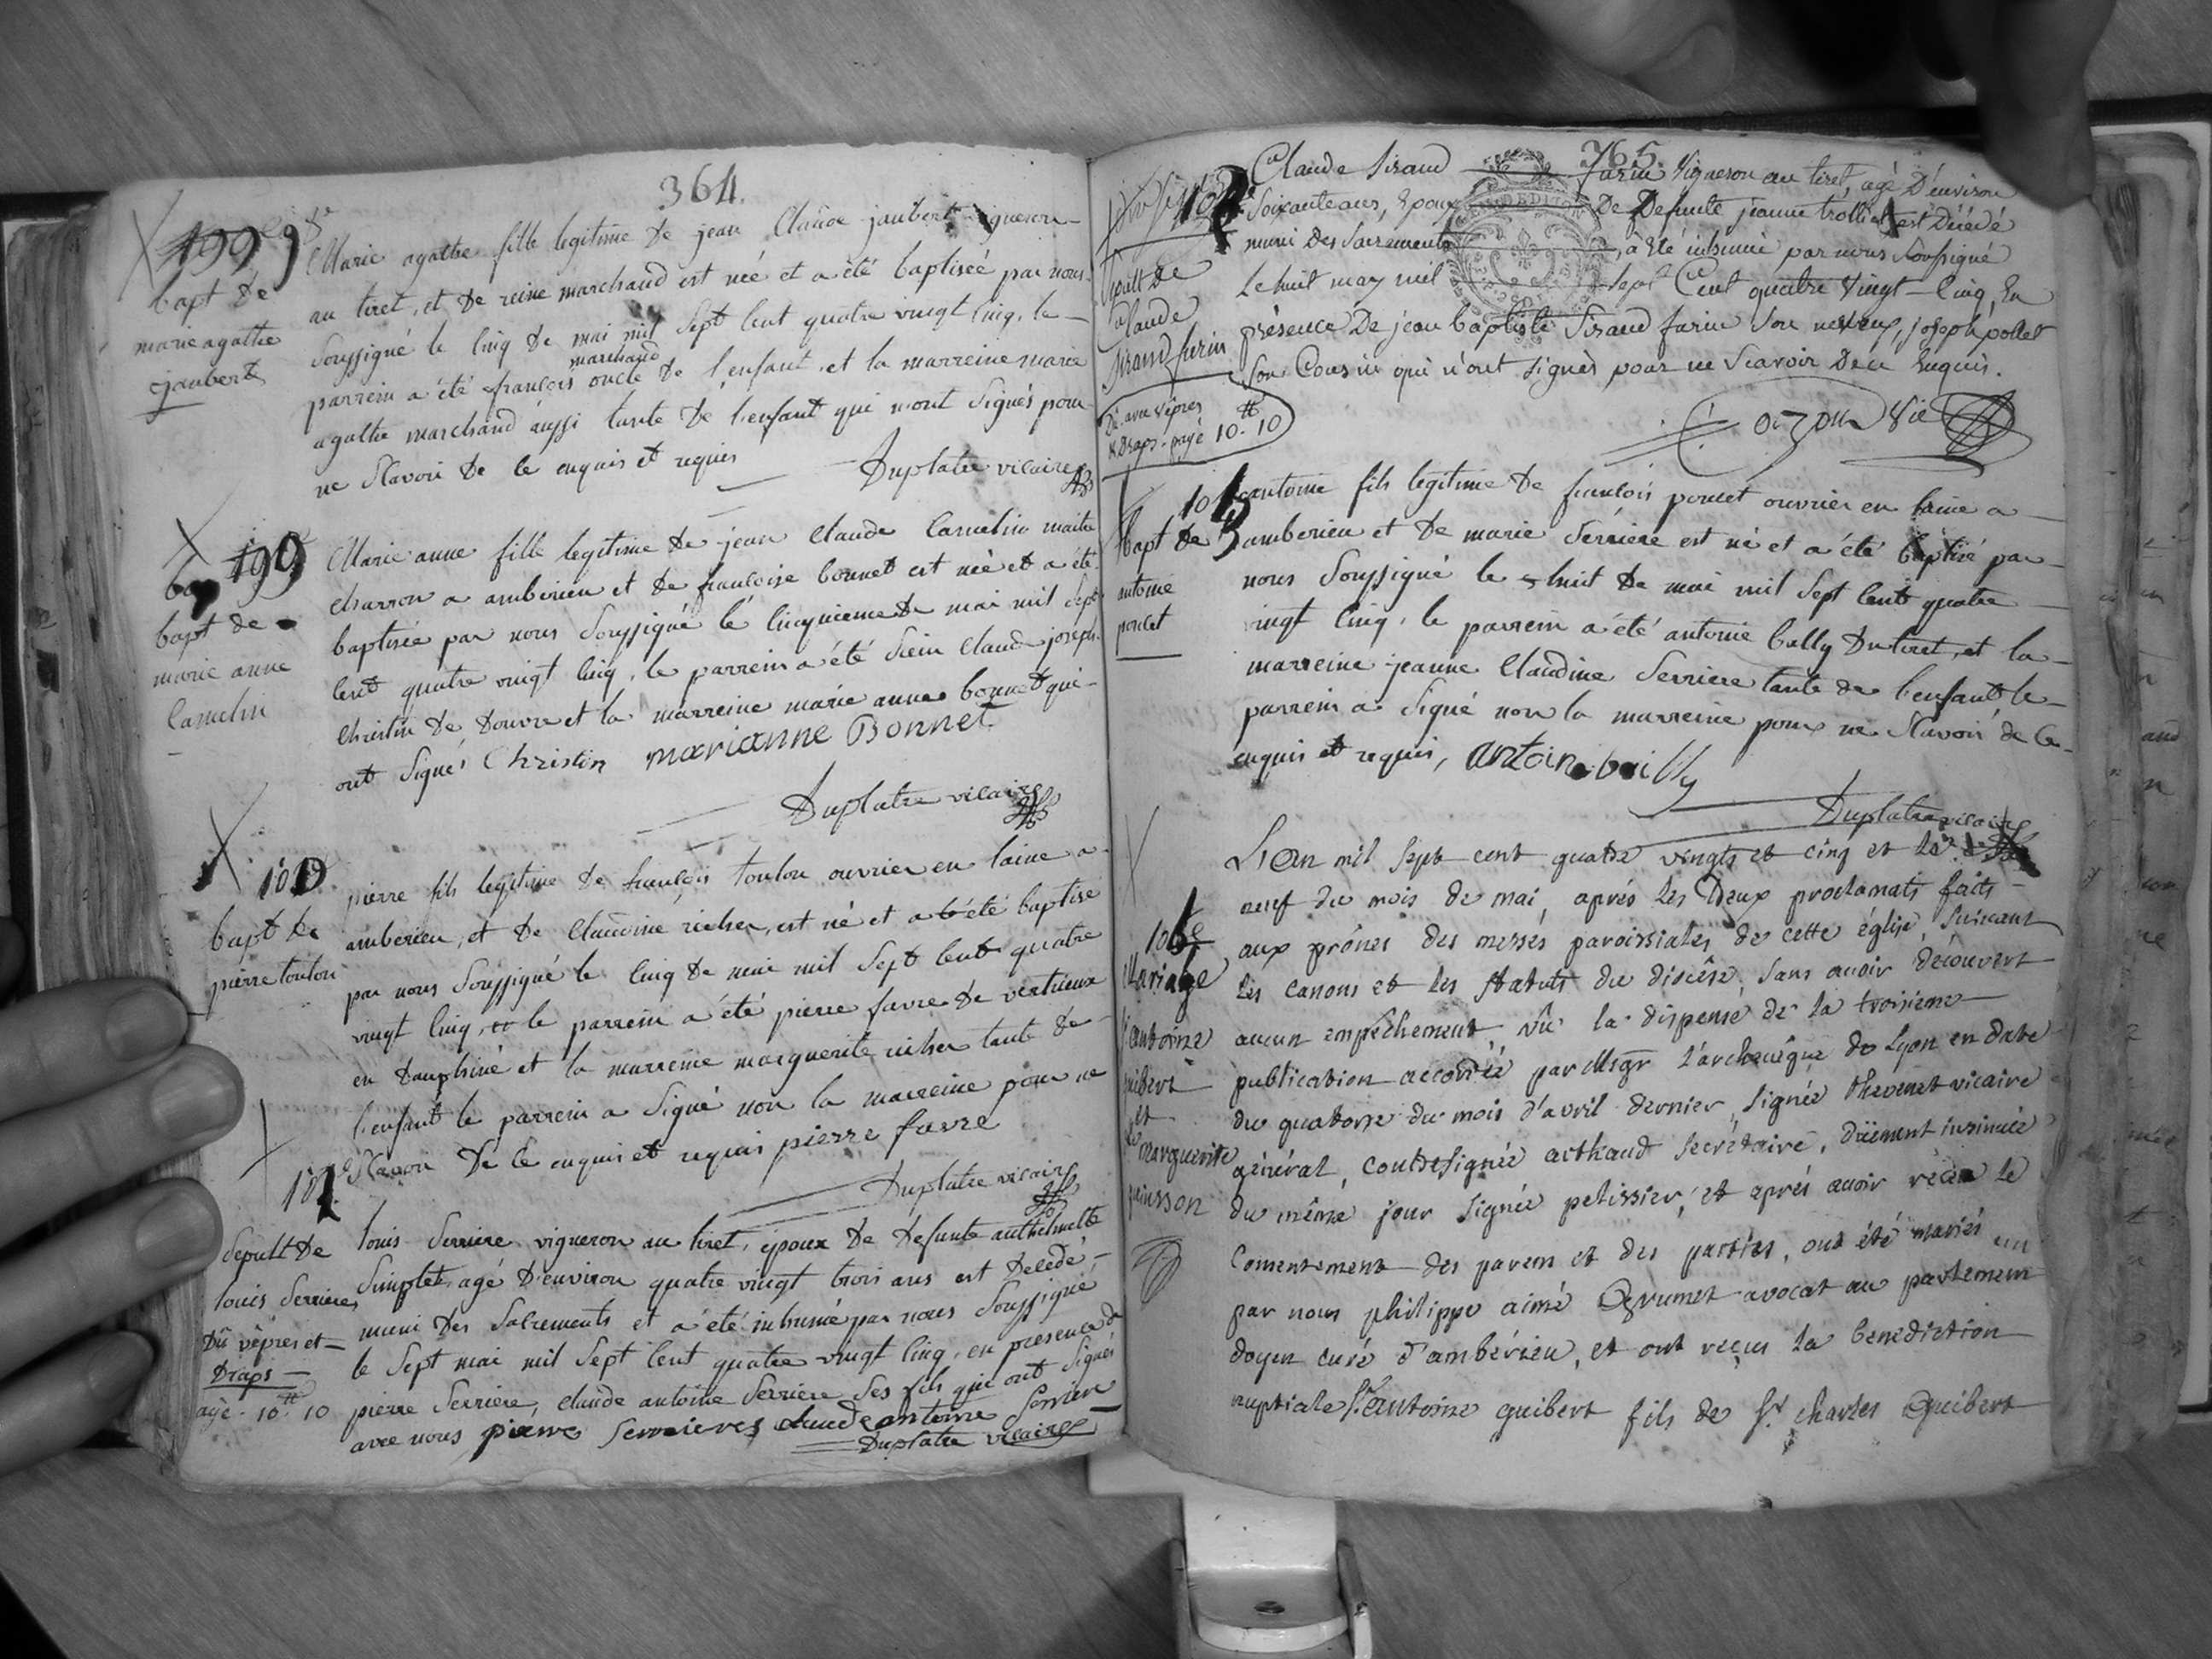 364.
bapt de
marie agathe
jaubert
Marie agathe fille legitime de jean Claude jaubert vigneron
au tiret, et de reine marchand est née et a été baptisée par nous
soussigné le cinq de mai mil sept cent quatre vingt cinq, le
marchand
parrein a été françois oncle de l'enfant, et la marreine marie
agathe marchand aussi tante de l'enfant qui n'ont signés pour
ne sçavoir de ce enquis et requis
Duplatre vicaire
bapt de
marie anne
Camelin
Marie anne fille legitime de jean Claude Camelin maitre
charron a amberieu et de françoise bonnet est née et a été
baptisée par nous soussigné le cinquieme de mai mil sept
cent quatre vingt cinq, le parrein a été sieur Claude joseph
Christin de douvre et la marreine marie anne bonnet qui
ont signés Christin marianne Bonnet
Duplatre vicaire
bapt de
pierre toulou
pierre fils legitime de françois toulou ouvrier en laine a
amberieu, et de Claudine richer, est né et a été baptisé
par nous soussigné le cinq de mai mil sept cent quatre
vingt cinq, le parrein a été pierre favre de vertrieux
en dauphiné et la marreine marguerite richer tante de
l'enfant le parrein a signé non la marreine pour ne
sçavoir de ce enquis et requis pierre favre
Duplatre vicaire
Sepult de
louis Serriere
Dû vêpres et
Draps
10 10
louis Serriere vigneron au tiret, epoux de defunte anthelmette
Simplet, agé d'environ quatre vingt trois ans est decedé
muni des Sacrements et a été inhumé par nous soussigné
le sept mai mil sept cent quatre vingt cinq, en presence de
pierre Serriere, claude antoine Serriere ses fils qui ont signés
avec nous pierre Serrieres claude antoine Serriere
Duplatre vicaire
365.
Sepult De
Claude
Sirand furin
Dû avec vêpres
& Draps - payé 10 - 10
Claude Sirand furin Vigneron au tiret, agé D'environ
soixante ans, Epoux De Defunte jeanne trolliet est Décédé
muni Des Sacrements, a Eté inhumé par nous Soussigné
Le huit may mil Sept Cent quatre Vingt-Cinq, En
présence De jean baptiste Sirand furin Son neveux, joseph pollet
Son Cousin qui n'ont signés pour ne Scavoir De ce Enquis.
bapt de
antoine
poncet
antoine fils legitime de françois poncet ouvrier en laine a
amberieu et de marie Serriere est né et a été baptisé par
nous soussigné le huit de mai mil sept cent quatre
vingt cinq, le parrein a été antoine bally du tiret, et la
marreine jeanne Claudine Serriere tante de l'enfant, le
parrein a signé non la marreine pour ne sçavoir de ce
enquis et requis, antoine bailly
Duplatre vicaire
Mariage
antoine
guibert
et
marguerite
L'an mil sept cent quatre vingts et cinq et le
neuf du mois de mai, après les deux proclamats faits
aux prônes des messes paroissiales de cette église, suivant
les canons et les statuts du diocèse, sans avoir découvert
aucun empêchement, vû la dispense de la troisieme
publication accordée par Msgr l'archevêque de Lyon en date
du quatorze du mois d'avril dernier, signée thevenet vicaire
général, contresignée arthaud secrétaire, düement insinuée
du même jour signée pelissier, et après avoir reçu le
consentement des parens et des parties, ont été mariés
par nous philippe aimé Grumet avocat au parlement
doyen curé d'ambérieu, et ont reçus la benediction
nuptiale Sr. antoine guibert fils de Sr. charles Guibert